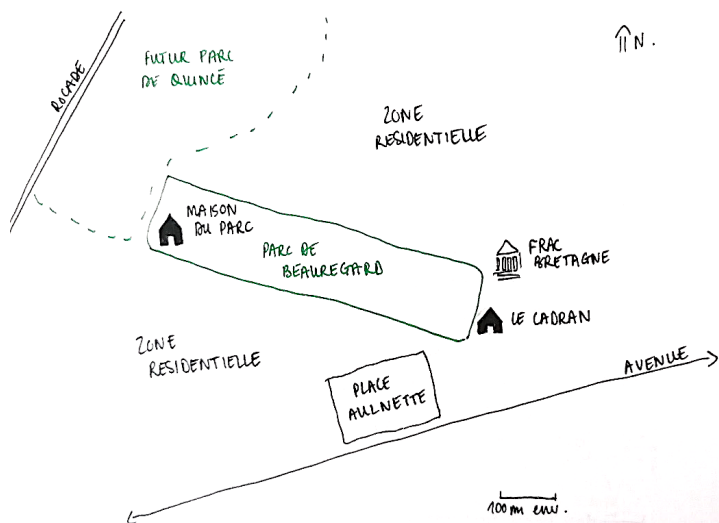 FUTUR PARC
DE QUINCÉ
N.
ROCADE
ZONE
RESIDENTIELLE
MAISON
DU PARC
PARC DE
BEAUREGARD
FRAC
BRETAGNE
LE CADRAN
ZONE
RESIDENTIELLE
PLACE
AULNETTE
AVENUE
100m env.